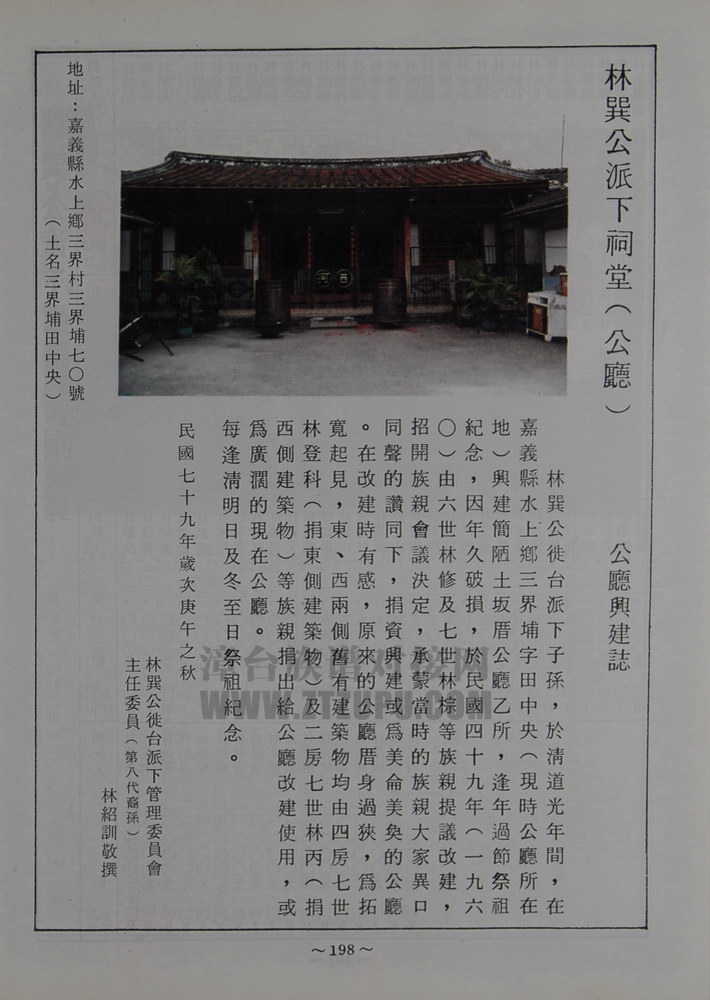 林巽公派下祠堂（公廳）
公廳興建誌
林巽公徙台派下子孫，於淸道光年間，在
嘉義縣水上鄉三界埔字田中央（現時公廳所在
地）興建簡陋土坂厝公廳乙所，逢年過節祭祖
紀念，因年久破損，於民國四十九年（一九六
〇）由六世林修及七世林棕等族親提議改建，
招開族親會議決定，承蒙當時的族親大家異口
同聲的讚同下，捐資興建成為美侖美奐的公廳
。在改建時有感，原來的公廳厝身過狹，爲拓
寬起見，東、西兩側舊有建築物均由四房七世
林登科（捐東側建築物）及二房七世林丙（捐
西側建築物）等族親捐出給公廳改建使用，或
爲廣濶的現在公廳。
每逢淸明日及冬至日祭祖紀念。
民國七十九年歲次庚午之秋
林巽公徙台派下管理委員會
主任委員（第八代裔孫）
林紹訓敬撰
西河
地址：嘉義縣水上鄉三界村三界埔七〇號
（土名三界埔田中央）
漳台族谱对接网
WWW.ZTZUPU.COM
～198～